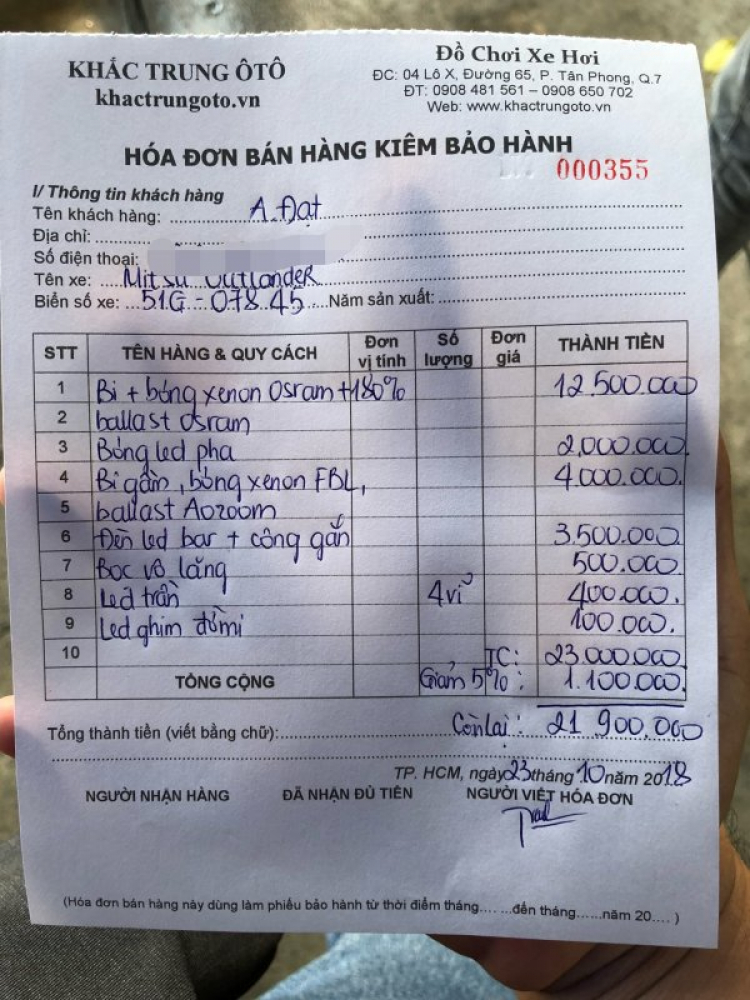 KHẮC TRUNG ÔTÔ
khactrungoto.vn
Đồ Chơi Xe Hơi
ĐC: 04 Lô X, Đường 65, P. Tân Phong, Q.7
ĐT: 0908 481 561 – 0908 650 702
Web: www.khactrungoto.vn
HÓA ĐƠN BÁN HÀNG KIÊM BẢO HÀNH
000355
I/ Thông tin khách hàng
Tên khách hàng: A. Đạt
Địa chỉ:
Số điện thoại:
Tên xe: Mitsu Outlander
Biển số xe: 51G - 078.45 Năm sản xuất:
STT TÊN HÀNG & QUY CÁCH Đơn vị tính Số lượng Đơn giá THÀNH TIỀN
1 Bi + bóng xenon Osram +180% 12.500.000
2 ballast osram
3 Bóng led pha 2.000.000
4 Bi gầm, bóng xenon FBL, 4.000.000
5 ballast Aozoom
6 Đèn led bar + công gắn 3.500.000
7 Bọc vô lăng 500.000
8 Led trần 4 vỉ 400.000.
9 Led ghim đờmi 100.000.
10 TC: 23.000.000
TỔNG CỘNG Giảm 5% : 1.100.000.
Tổng thành tiền (viết bằng chữ): Còn lại: 21 900.000
TP. HCM, ngày 23 tháng 10 năm 2018
NGƯỜI NHẬN HÀNG ĐÃ NHẬN ĐỦ TIỀN NGƯỜI VIẾT HÓA ĐƠN
(Hóa đơn bán hàng này dùng làm phiếu bảo hành từ thời điểm tháng.... ...đến tháng......năm 20.... )